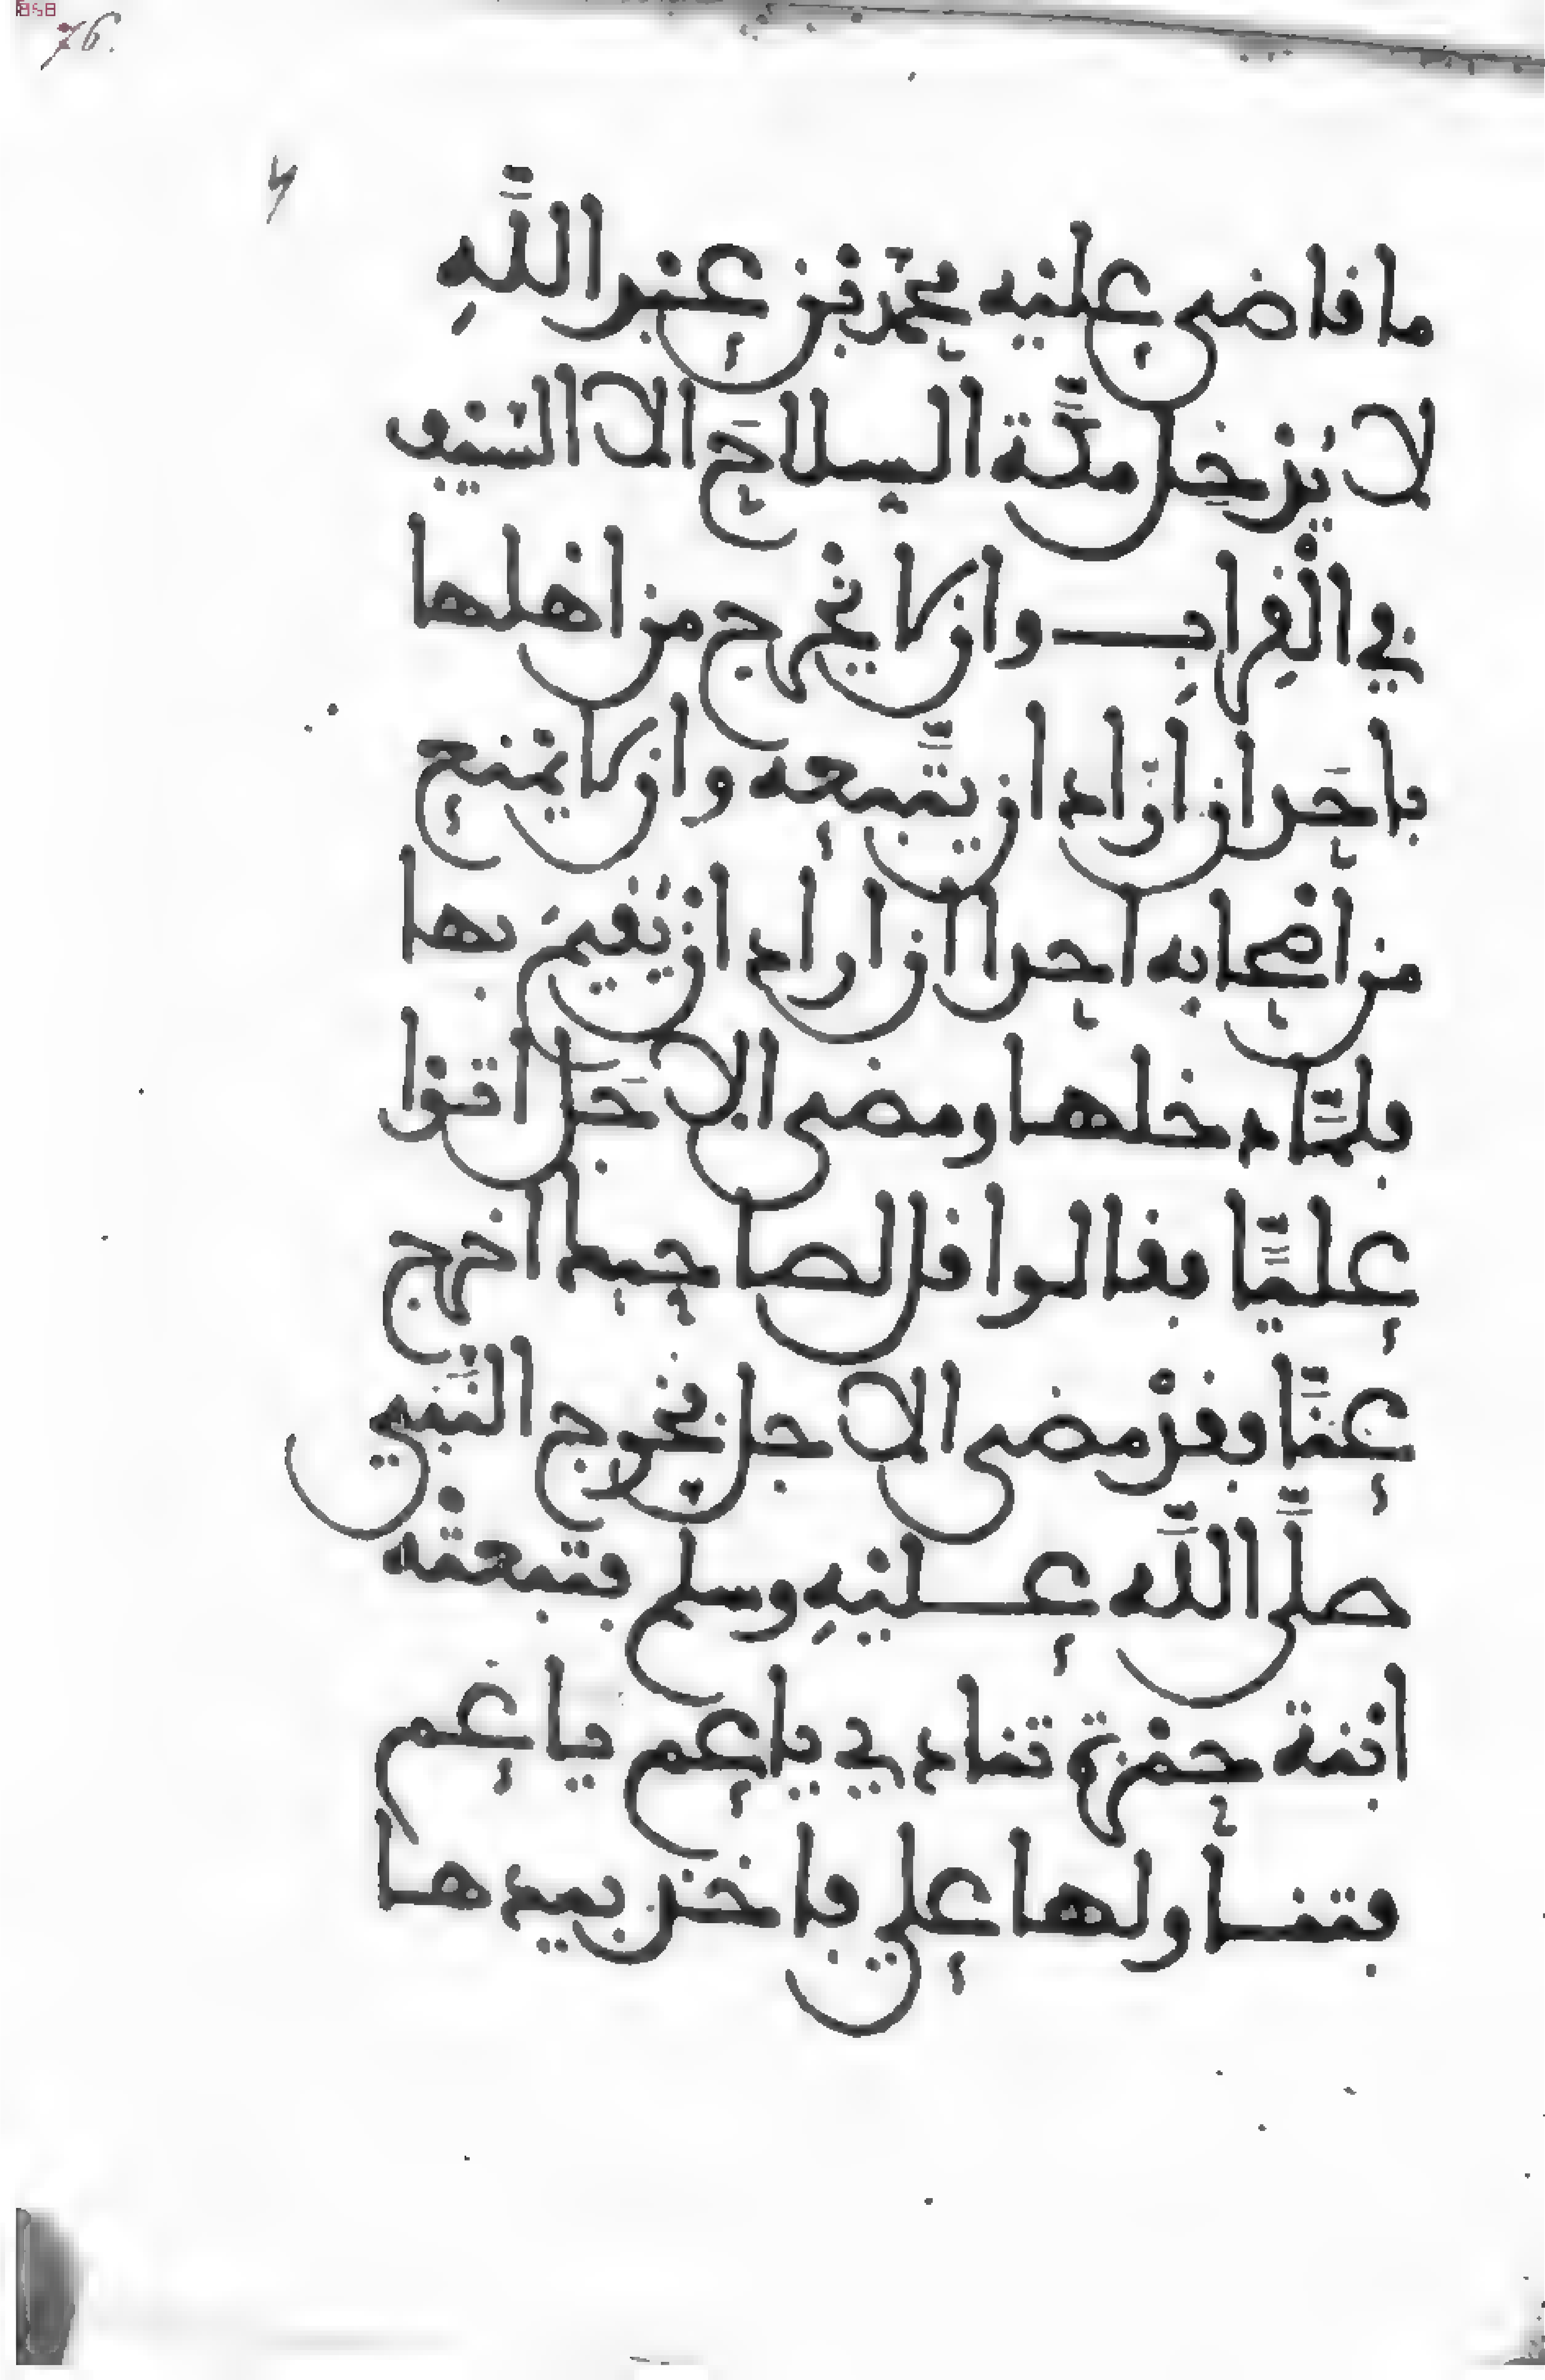 76.
ما قاضى عليه محمد بن عبد الله
لا يدخل مكة السلاح الا السيف
في القراب وان لا يخرج من اهلها
باحد ان اراد ان يتبعه وان لا يمنع
من اصحابه احدا ان اراد ان يقيم بها
فلما دخلها ومضى الاجل اتوا
عليا فقالوا قل لصاحبك اخرج
عنا فقد مضى الاجل فخرج النبي
صلى الله عليه وسلم فتبعته
ابنة حمزة تنادي يا عم يا عم
فتناولها علي فاخذ بيدها